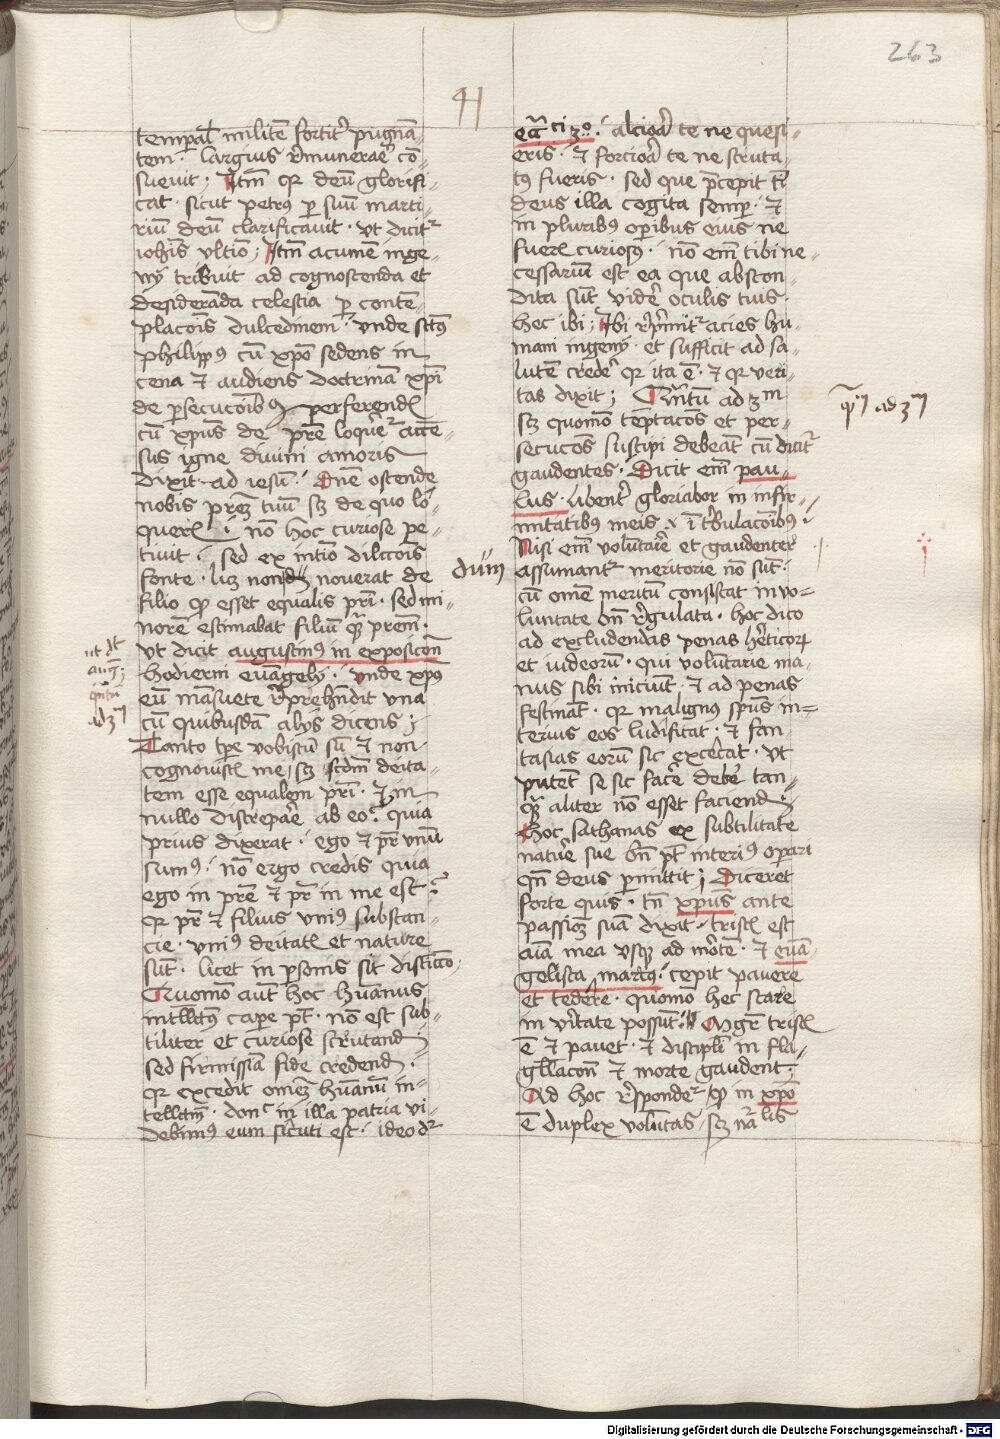 263
41
temp̄al̄ militē fortit̕ pugnā
tem · largius r̄munerae᷑ cō-
sueuit ; Itm̄ q̕ deū glorifi-
cat · sicut petrꝰ ꝑ suū marti-
riū deū clarificauit · vt dicit᷑
ioh̄is vltīo ; Itm̄ acumē inge-
nij tribuit ad cognoscenda et
desiderāda celestia ꝑ contē-
placōis dulcedinem · vnde sctūs
philippꝰ cū xp̄o sedens in
cena et audiens doctrinā xp̄i
de ꝑsecucōibꝫ perferend̄
cū xpūs de pr̄e loquer᷑ accē-
sus igne diuini amoris
dixit ad iesū · dn̄e ostende
nobis pr̄em tuū sꝫ de quo lo-
quer̄ i nō hoc curiose pe-
tiuit · sed ex intīo dilccōis
fonte · lꝫ nondū nouerat de
filio ꝙ esset equalis pr̄i · sed mi-
norē estimabat filiū q̄ꝫ prēm ·
vt dicit augustinꝰ in exposicōn
hodierni euāgelij · vnde xp̄us
eū māsuete r̄prehn̄dit vna
cū quibusdā alijs dicens ;
Tanto tꝑe vobiscū sū et non
cognouist̄ me / sꝫ scdm̄ deita-
tem esse equalem pr̄i · et in
nullo discrepae᷑ ab eo · quia
prius dixerat · ego et pr̄ vnū
sumꝰ · nō ergo credis quia
ego in pr̄e et pr̄ in me est ·
q̕ pr̄ et filius vniꝰ substan-
cie · vniꝰ deitat̄ et nature
sūt · licet in ꝑsonis sīt distīctō
Quomō aūt hoc hūanus
intll̄ctꝰ cape pt̄ · nō est sub-
tiliter et curiose scrutand̄
sed firmissīa fide credend̄ ·
q̕ excedit omēꝫ hūanū in-
tellctm̄ · donc̄ in illa patria vi-
debimꝰ eum sicuti est · ideo dr̄
dūm
ut dt̄
auḡ ;
quītū
ad 3m
ecc̄i 3o · alciora te ne quesi-
eris · et forciora te ne scruta-
tꝰ fueris · sed que p̄cepit t̄i
deus illa cogita semꝑ · et
in pluribꝰ oꝑibus eius ne
fuer̄ curiosꝰ · nō em̄ tibi ne-
cessariū est ea que abscon-
dita sūt vider̄ oculis tuis ·
hec ibi ; Ibi r̄primit᷑ acies hu-
mani ingenij · et sufficit ad sa-
lutē creder̄ q̕ ita ē · et q̕ veri-
tas dixit ; Quītū ad 3m
sꝫ quomō tēptacōes et per-
secucōes suscipi debeāt cū dicit᷑
gaudentes · Dicit em̄ pau-
lus · libent̕ gloriabor in infir-
mitatibꝰ meis · et ī t̄bulacōibꝰ ·
Nisi em̄ volūtarie et gaudenter
assumant᷑ meritorie nō sūt ·
cū omē meritū consistat in vo-
luntate bn̄ r̄gulata · hoc dico
ad excludendas penas hēticoꝝ
et iudeorū · qui volūtarie ma-
nus sibi iniciūt · et ad penas
festināt · q̕ malignꝰ spūs in-
terius eos ludificat · et fan-
tasias eorū sic excecat · vt
putēt se sic facer̄ deber̄ tan-
q̄ꝫ aliter nō esset faciend̄ ·
Hoc sathanas ex subtilitate
nature sue bn̄ pt̄ interiꝰ oꝑari
qn̄ deus ꝑmittit ; Diceret
forte quis · tn̄ xpūs ante
passionē suā dixit · trist̄ est
aīa mea vsqꝫ ad mortē · et euā-
gelista martꝰ · cepit pauere
et tedere · quomō hec stare
in v̄itate possūt · Mgr̄ trist̄
ē et pauet · et discipl̄i in fla-
gll̄acōn̄ et morte gaudent ·
Ad hoc r̄sponder᷑ ꝙ in xp̄o
ē duplex volūtas / sꝫ nāalis
q̄ꝫ ad 3m
Digitalisierung gefördert durch die Deutsche Forschungsgemeinschaft - DFG